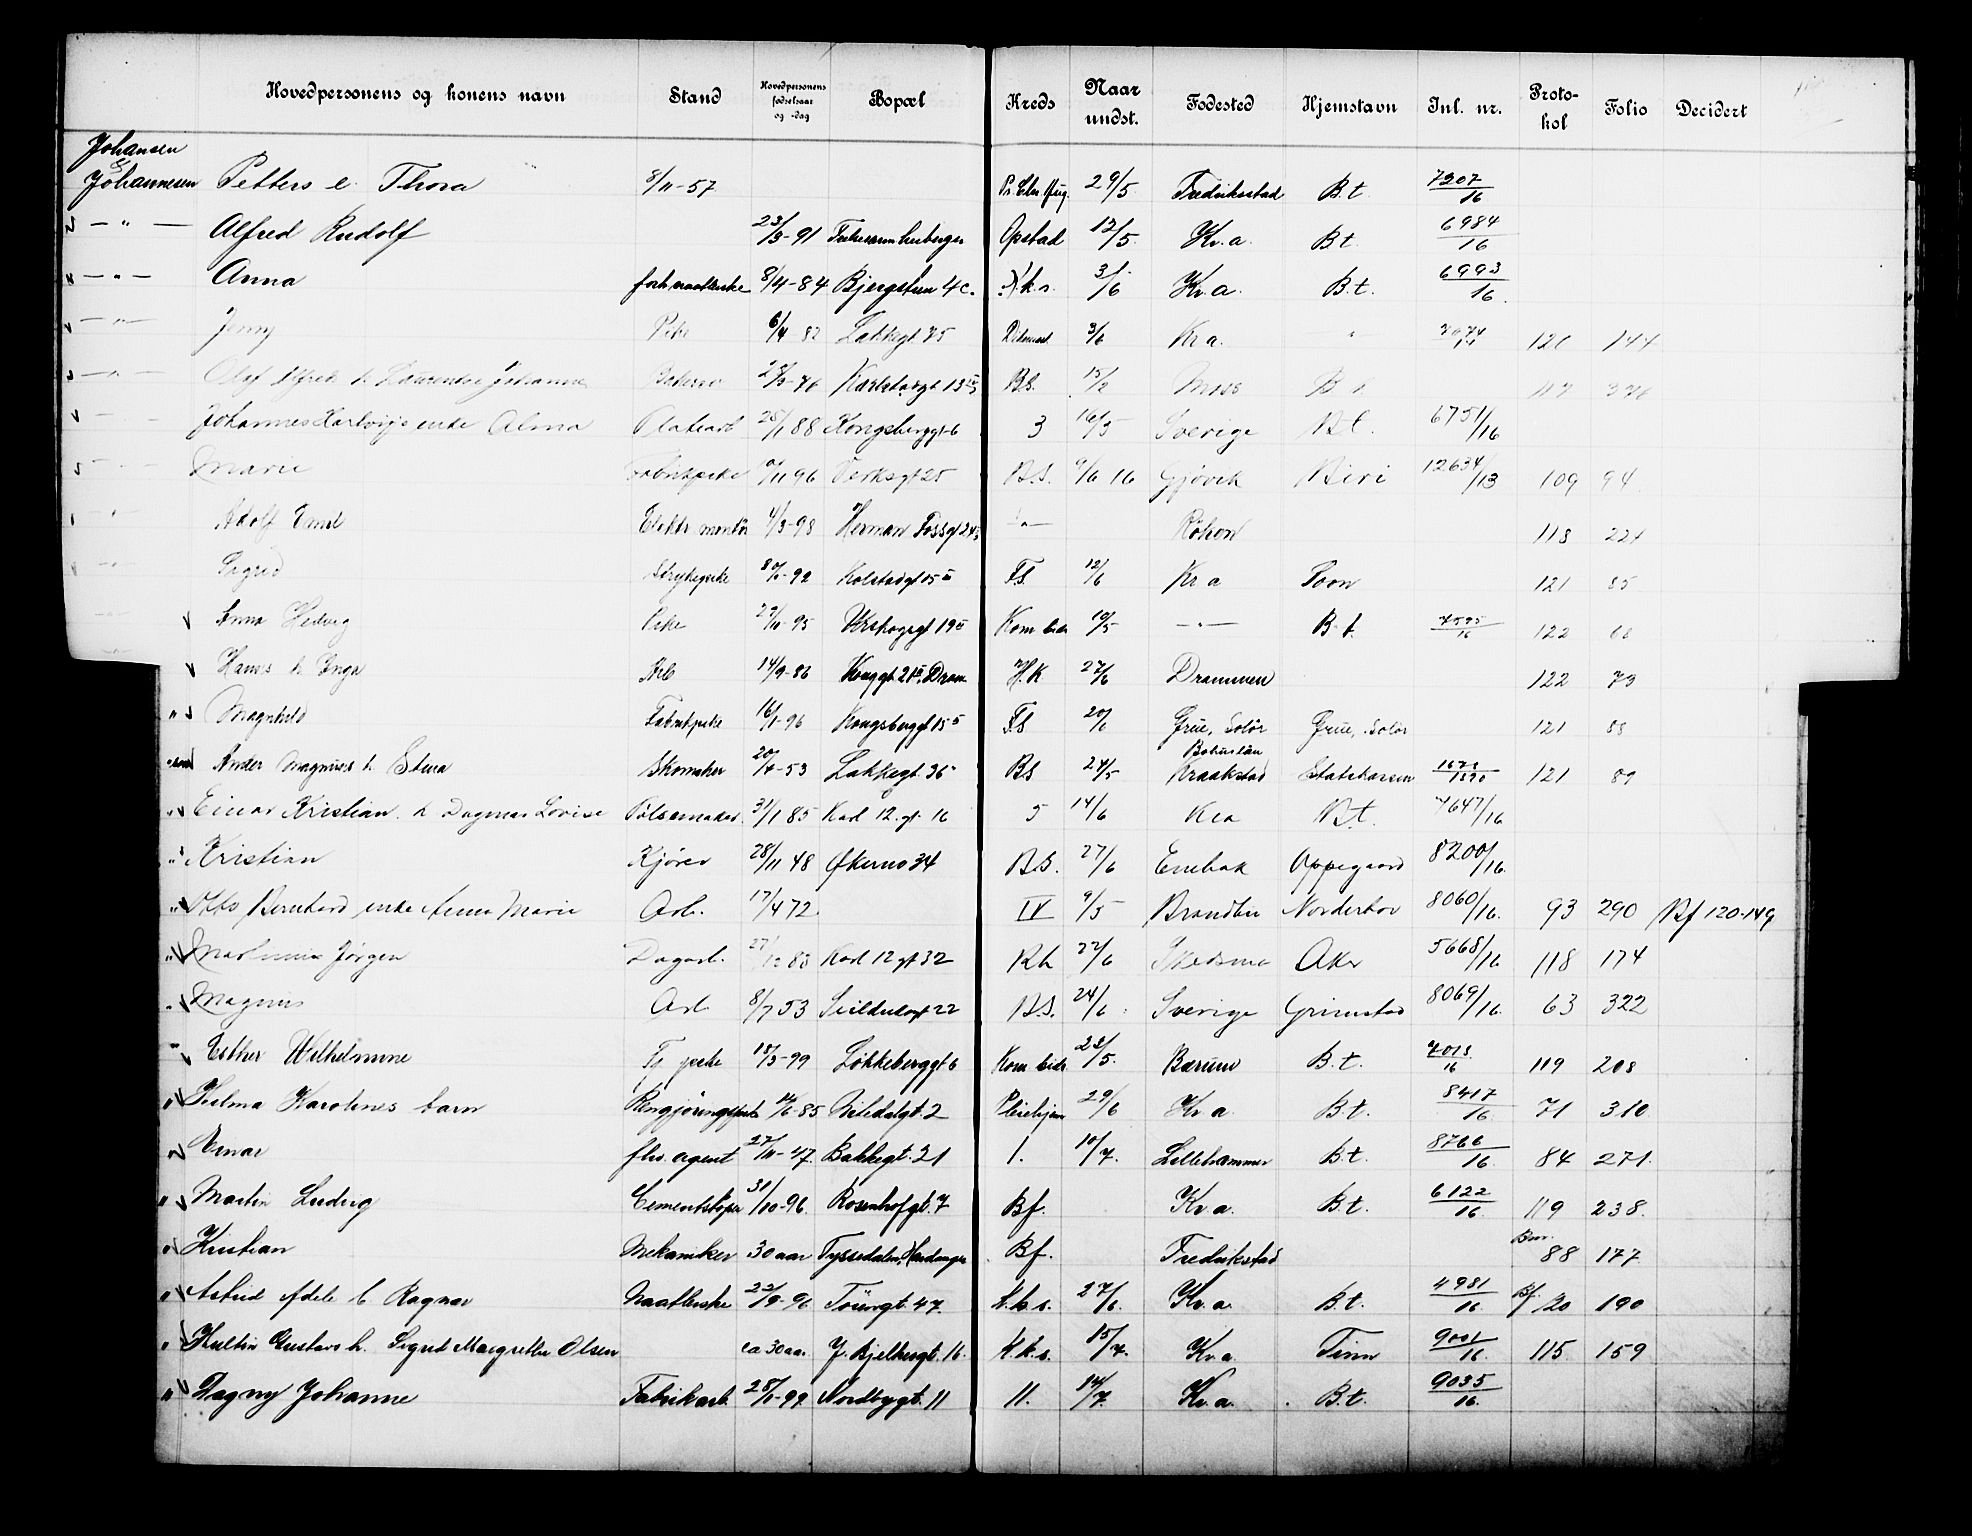 Hovedpersonens og konens navn | Stand | Hovedpersonens fødselsaar og -dag | Bopæl | Kreds | Naar undst. | Fødested | Hjemstavn | Inl. nr. | Protokol | Folio | Decidert
Johansen &
Johannesen Petters e. Thora 8/11-57 29/5 Fredrikstad B.t. 7307/16
— " — Alfred Rudolf 23/3-91 Opstad 12/5. Kr.a. B.t. 6984/16
— " — Anna 8/4-84 Bjergstien 4c. K.k.s. 3/6 Kr.a. B.t. 6993/16.
— " — Jenny Pike 6/4 82 Lakkegt. 75 3/6 Kr a. " 121 144
— " — Olaf Alfred h. Laurentse Johanne Karlstadgt 13 BS. 15/2 Moss B t 117 376
— " — Johannes Hartvigs enke Alma 25/1 88 Kongsberggt 6 3 16/5 Sverige Bt. 6751/16
— " — Marie Fabrikpike 11 96 Verksgt 25 B.S. 9/6 16 Gjøvik Biri 12634/13 109 94
— " — Adolf Emil Elektr. montør 4/3-98 Herman Fossgt — " — Røken 118 224
— " — Sigrid Strykepike 92 Kolstadgt 15 II F.S. 12/6 Kr a 121 85
— " — Anna Hedvig Pike 27/11-95 Urskogsgt 19 II Kom bidr 19/5 — " — B.t. 7595/16 122 68
Hans h. Inga Arb 14/9-86 Konggt 21 II, Dram H.K 27/6 Drammen 122 73
" Magnhild Fabrikpike 16/1-96 Kongsberggt 15 F.S 20/6 Grue, Solør Grue, Solør 121 88
Ander Magnus h. Stina Skomaker 20/4-53 Lakkegt. 36 BS 24/5 Bohuslän Kraakstad Statskassen 121 89
" Einar Kristian. h Dagmar Lovise Pølsemaker. 31/1 85 Karl 12. gt. 16 5 14/6 Kra B.t. 7647/16
" Kristian Kjører 28/11 48 Økernv 34 B.S. 27/6 Enebak Oppegaard 8200/16.
" Otto Bernhard enke Anna Marie Arb. 17/4 72 IV 9/5 Brandbu Norderhov 8060/16. 93 290 Bf 120-149
" Jørgen Dagarb. 27/12 83 Karl 12 gt 32 Rh 22/6 Skedsmo Aker 5668/16 118 174
" Magnus Arb 8/7 53 Seildugsgt 22 B.S. 24/6 Sverige Grimstad 8069/16. 63 322
" Esther Wilhelmine Tj. pike 18/3-99 Løkkeberggt 6 Kom bidr 23/5. Bærum B.t. 7013/16 119 208
" Hilma Karolines barn Rengjøringspike 6-85 Nildalgt. 2 Pleiehjem 29/6 Kr.a. B.t. 8417/16 71 310
" Einar fhv. agent 27/11-47. Bakkegt. 21 1. 10/7. Lillehammer B.t. 8766/16. 84 271.
" Martin Ludvig Cementstøper 31/10-96. Rosenhofgt. 7 Bf. Kr.a. B.t. 6122/16. 119 238.
" Kristian Mekaniker 30 aar Tyssedalen, Hardanger Bf. Fredrikstad 88 177.
" Astrid Adele b Ragnar Naatlerske 22/9-96 Tøiengt. 47. K.k.s. 27/6. Kr.a. B.t. 4981/16. Bf 120 190
" Gustavs h. Sigrid Margrethe Olsen ca 30 aar J. Bjelkesgt. 16. K.k.s. 15/7. Kr.a. Tinn 9001/16. 115. 159
" Dagny Johanne Fabrikarb. 25/1-99 Nordbygt. 11 11. 14/7. Kr.a. B.t. 9035/16.